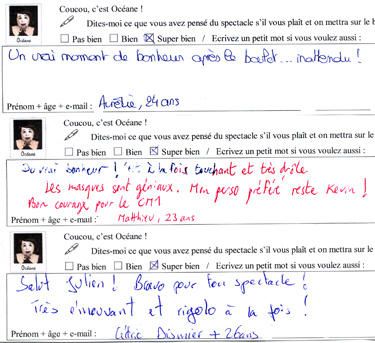 Coucou, c'est Océane !
Dites-moi ce que vous avez pensé du spectacle s'il vous plaît et on mettra sur le b
Pas bien Bien Super bien / Ecrivez un petit mot si vous voulez aussi :
Océane
Un vrai moment de bonheur après le buffet... inattendu !
Prénom + âge + e-mail : Aurélie, 24 ans
Coucou, c'est Océane !
Dites-moi ce que vous avez pensé du spectacle s'il vous plaît et on mettra sur le
Pas bien Bien Super bien / Ecrivez un petit mot si vous voulez aussi :
Océane
Du vrai bonheur ! à la fois touchant et très drôle.
Les masques sont géniaux. Mon perso préféré reste Kevin !
Bon courage pour le CM1
Prénom + âge + e-mail : Matthieu, 23 ans
Coucou, c'est Océane !
Dites-moi ce que vous avez pensé du spectacle s'il vous plaît et on mettra sur le
Pas bien Bien Super bien / Ecrivez un petit mot si vous voulez aussi :
Océane
Salut Julien ! Bravo pour ton spectacle !
Très émouvant et rigolo à la fois !
Prénom + âge + e-mail : 26 ans